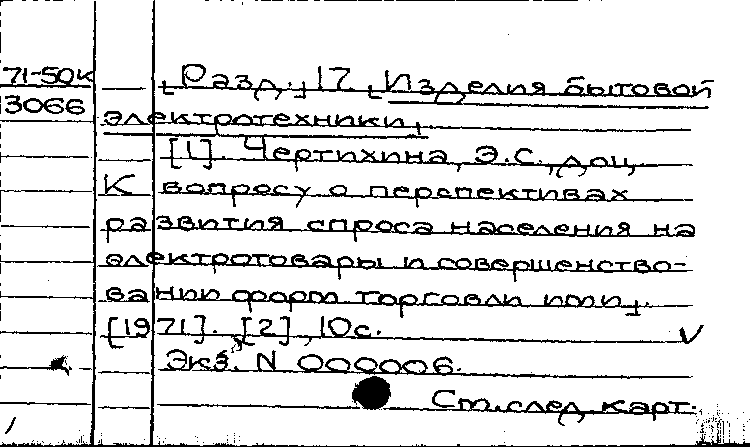 71-50к
3066
Разд. 17 Изделия бытовой
электротехники
[1]. Чертихина, Э.С., доц.
К вопросу о перспективах
развития спроса населения на
электротовары и совершенство-
вании форм торговли ими.
[1971]. [2], 10с.
Экз. N 000006.
См. след. карт.